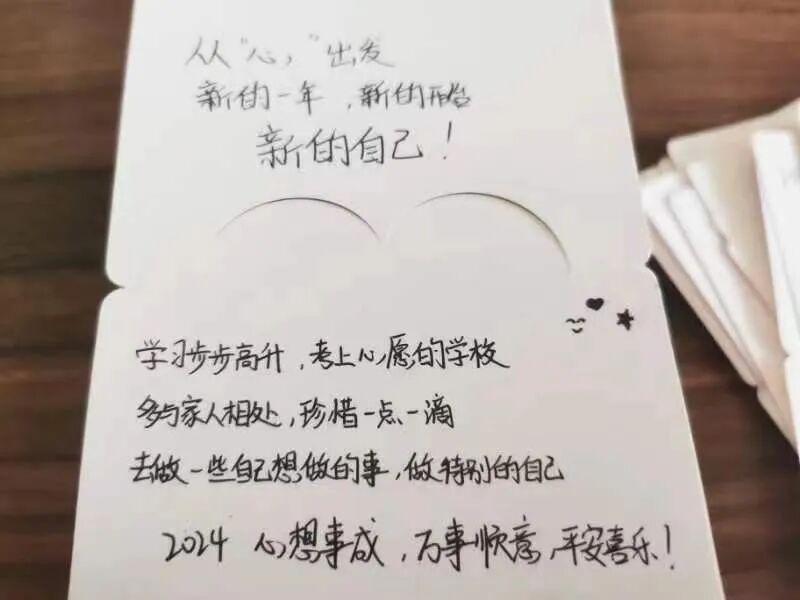 从“心”出发
新的一年,新的开始
新的自己!
学习步步高升,考上心愿的学校
多与家人相处,珍惜一点一滴
去做一些自己想做的事,做特别的自己
2024 心想事成,万事顺意,平安喜乐!